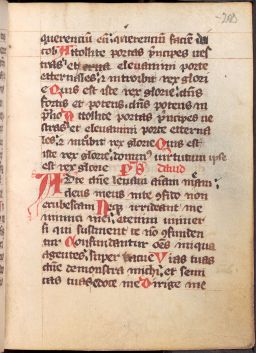 querenciũ eũ querenciũ faciē dei ia
cob Attolite portas p̃ncipes ves
tras et eleuamini porte
etternales ⁊ introibit rex glori
e Quis est iste rex glorie dñs
fortis et potens dñs potens in
p̃lio Attolite portas p̃ncipes ve
stras et eleuamini porte etterna
les ⁊ introibit rex glorie Quis est
iste rex glorie dominꝰ uirtutum ipse
est rex glorie P̃s dauid
Ad te dñe leuaui aĩam meam
deus meus in te ↄfido non
erubescam Neqꝫ irrideant me
inimici mei etenim vniuer
si qui sustinent te nō ↄfunden
tur Confundantur oēs iniqua
agentes super uacue Vias tuas
dñe demonstra michi et semi
tas tuas edoce me Dirige me